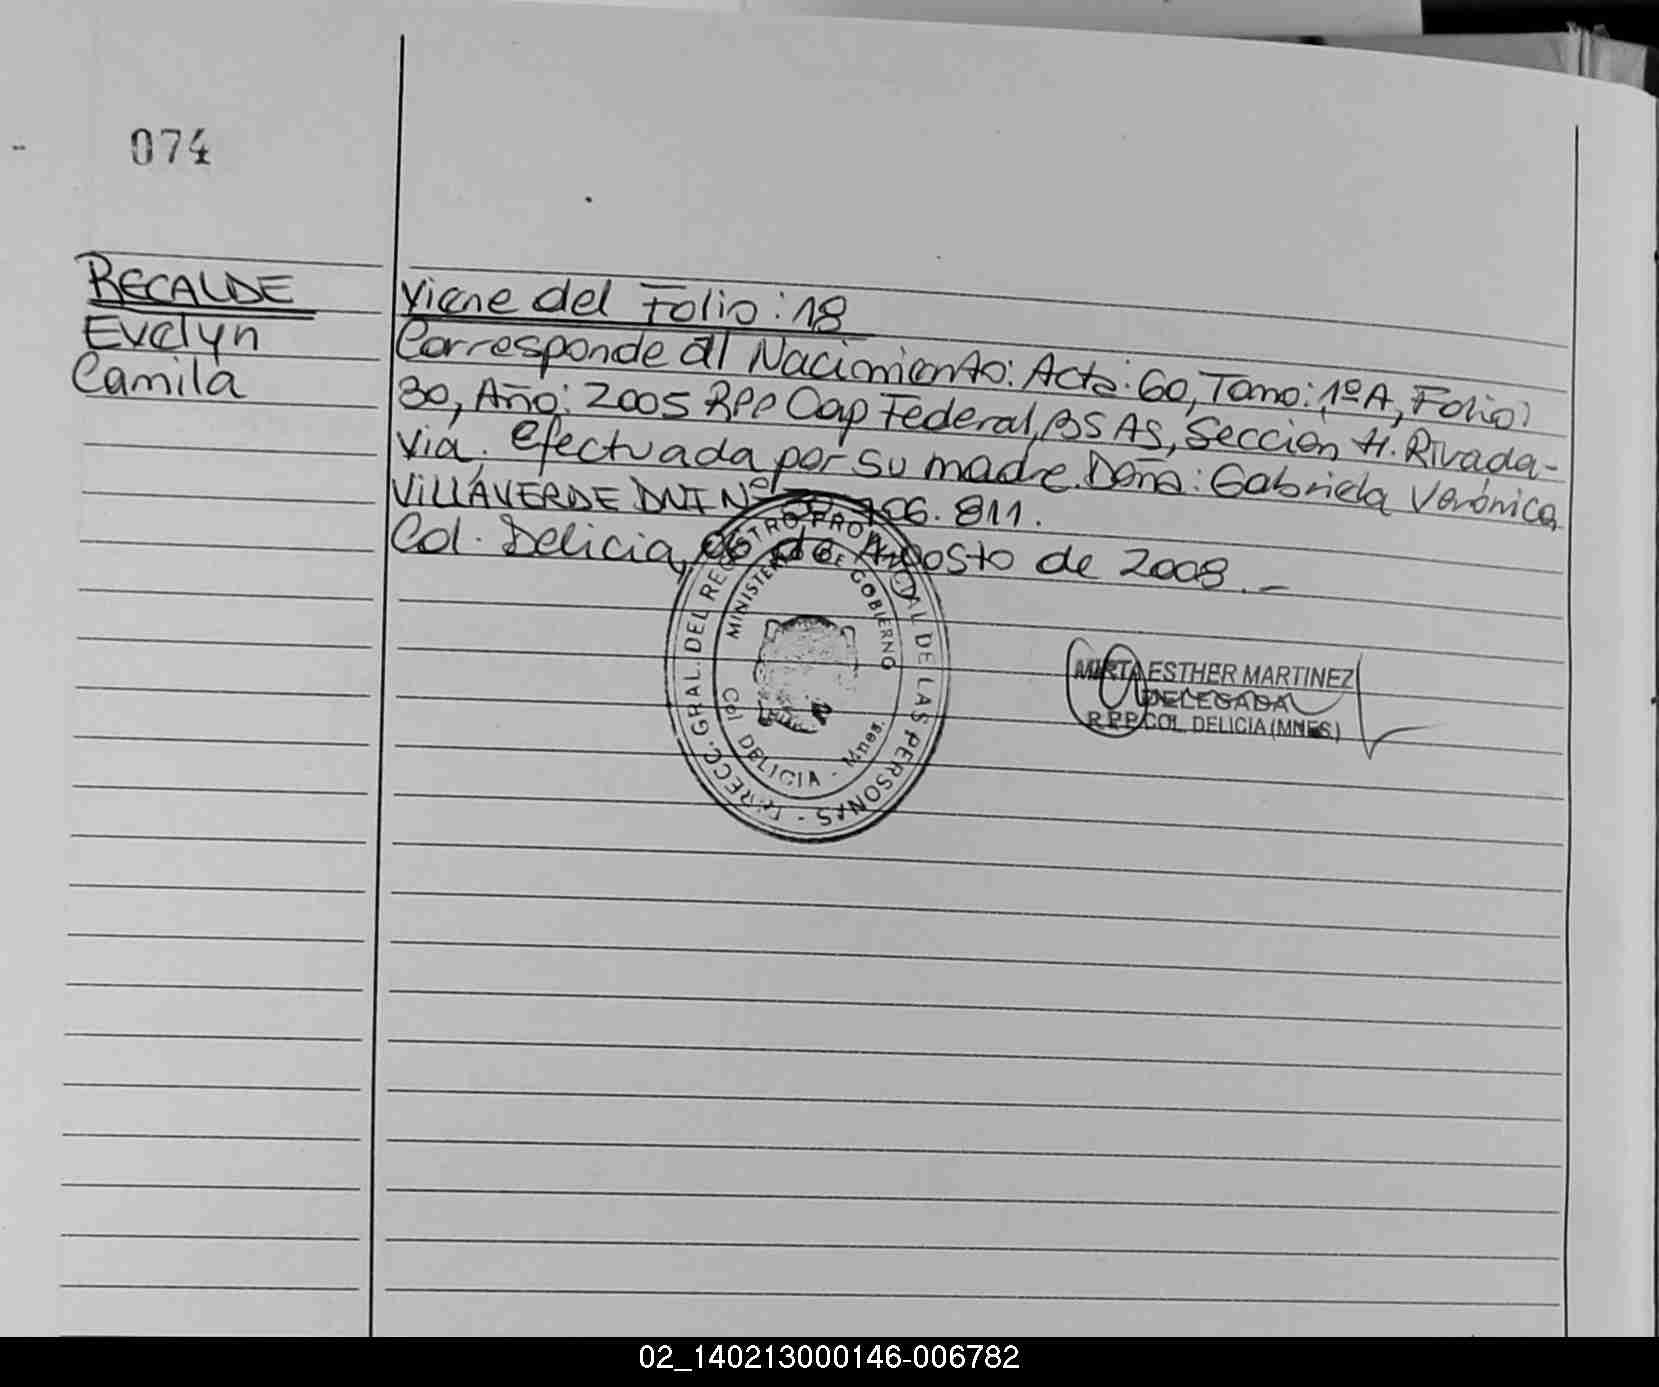 074
RECALDE
Evelyn
Camila
Viene del Folio: 18
Corresponde al Nacimiento: Acta: 60, Tomo: 1º A, Folio:
30, Año: 2005 RPP Cap Federal, BS AS, Sección H. Rivada-
via. efectuada por su madre Doña: Gabriela Verónica
VILLAVERDE DNI Nº 706.811.
Col. Delicia, de Agosto de 2008.-
DIRECC. GRAL. DEL REGISTRO PROVINCIAL DE LAS PERSONAS -
MINISTERIO DE GOBIERNO
Col DELICIA - Mnes.
MIRTA ESTHER MARTINEZ
DELEGADA
R.P.P. COL. DELICIA (MNES)
02_140213000146-006782